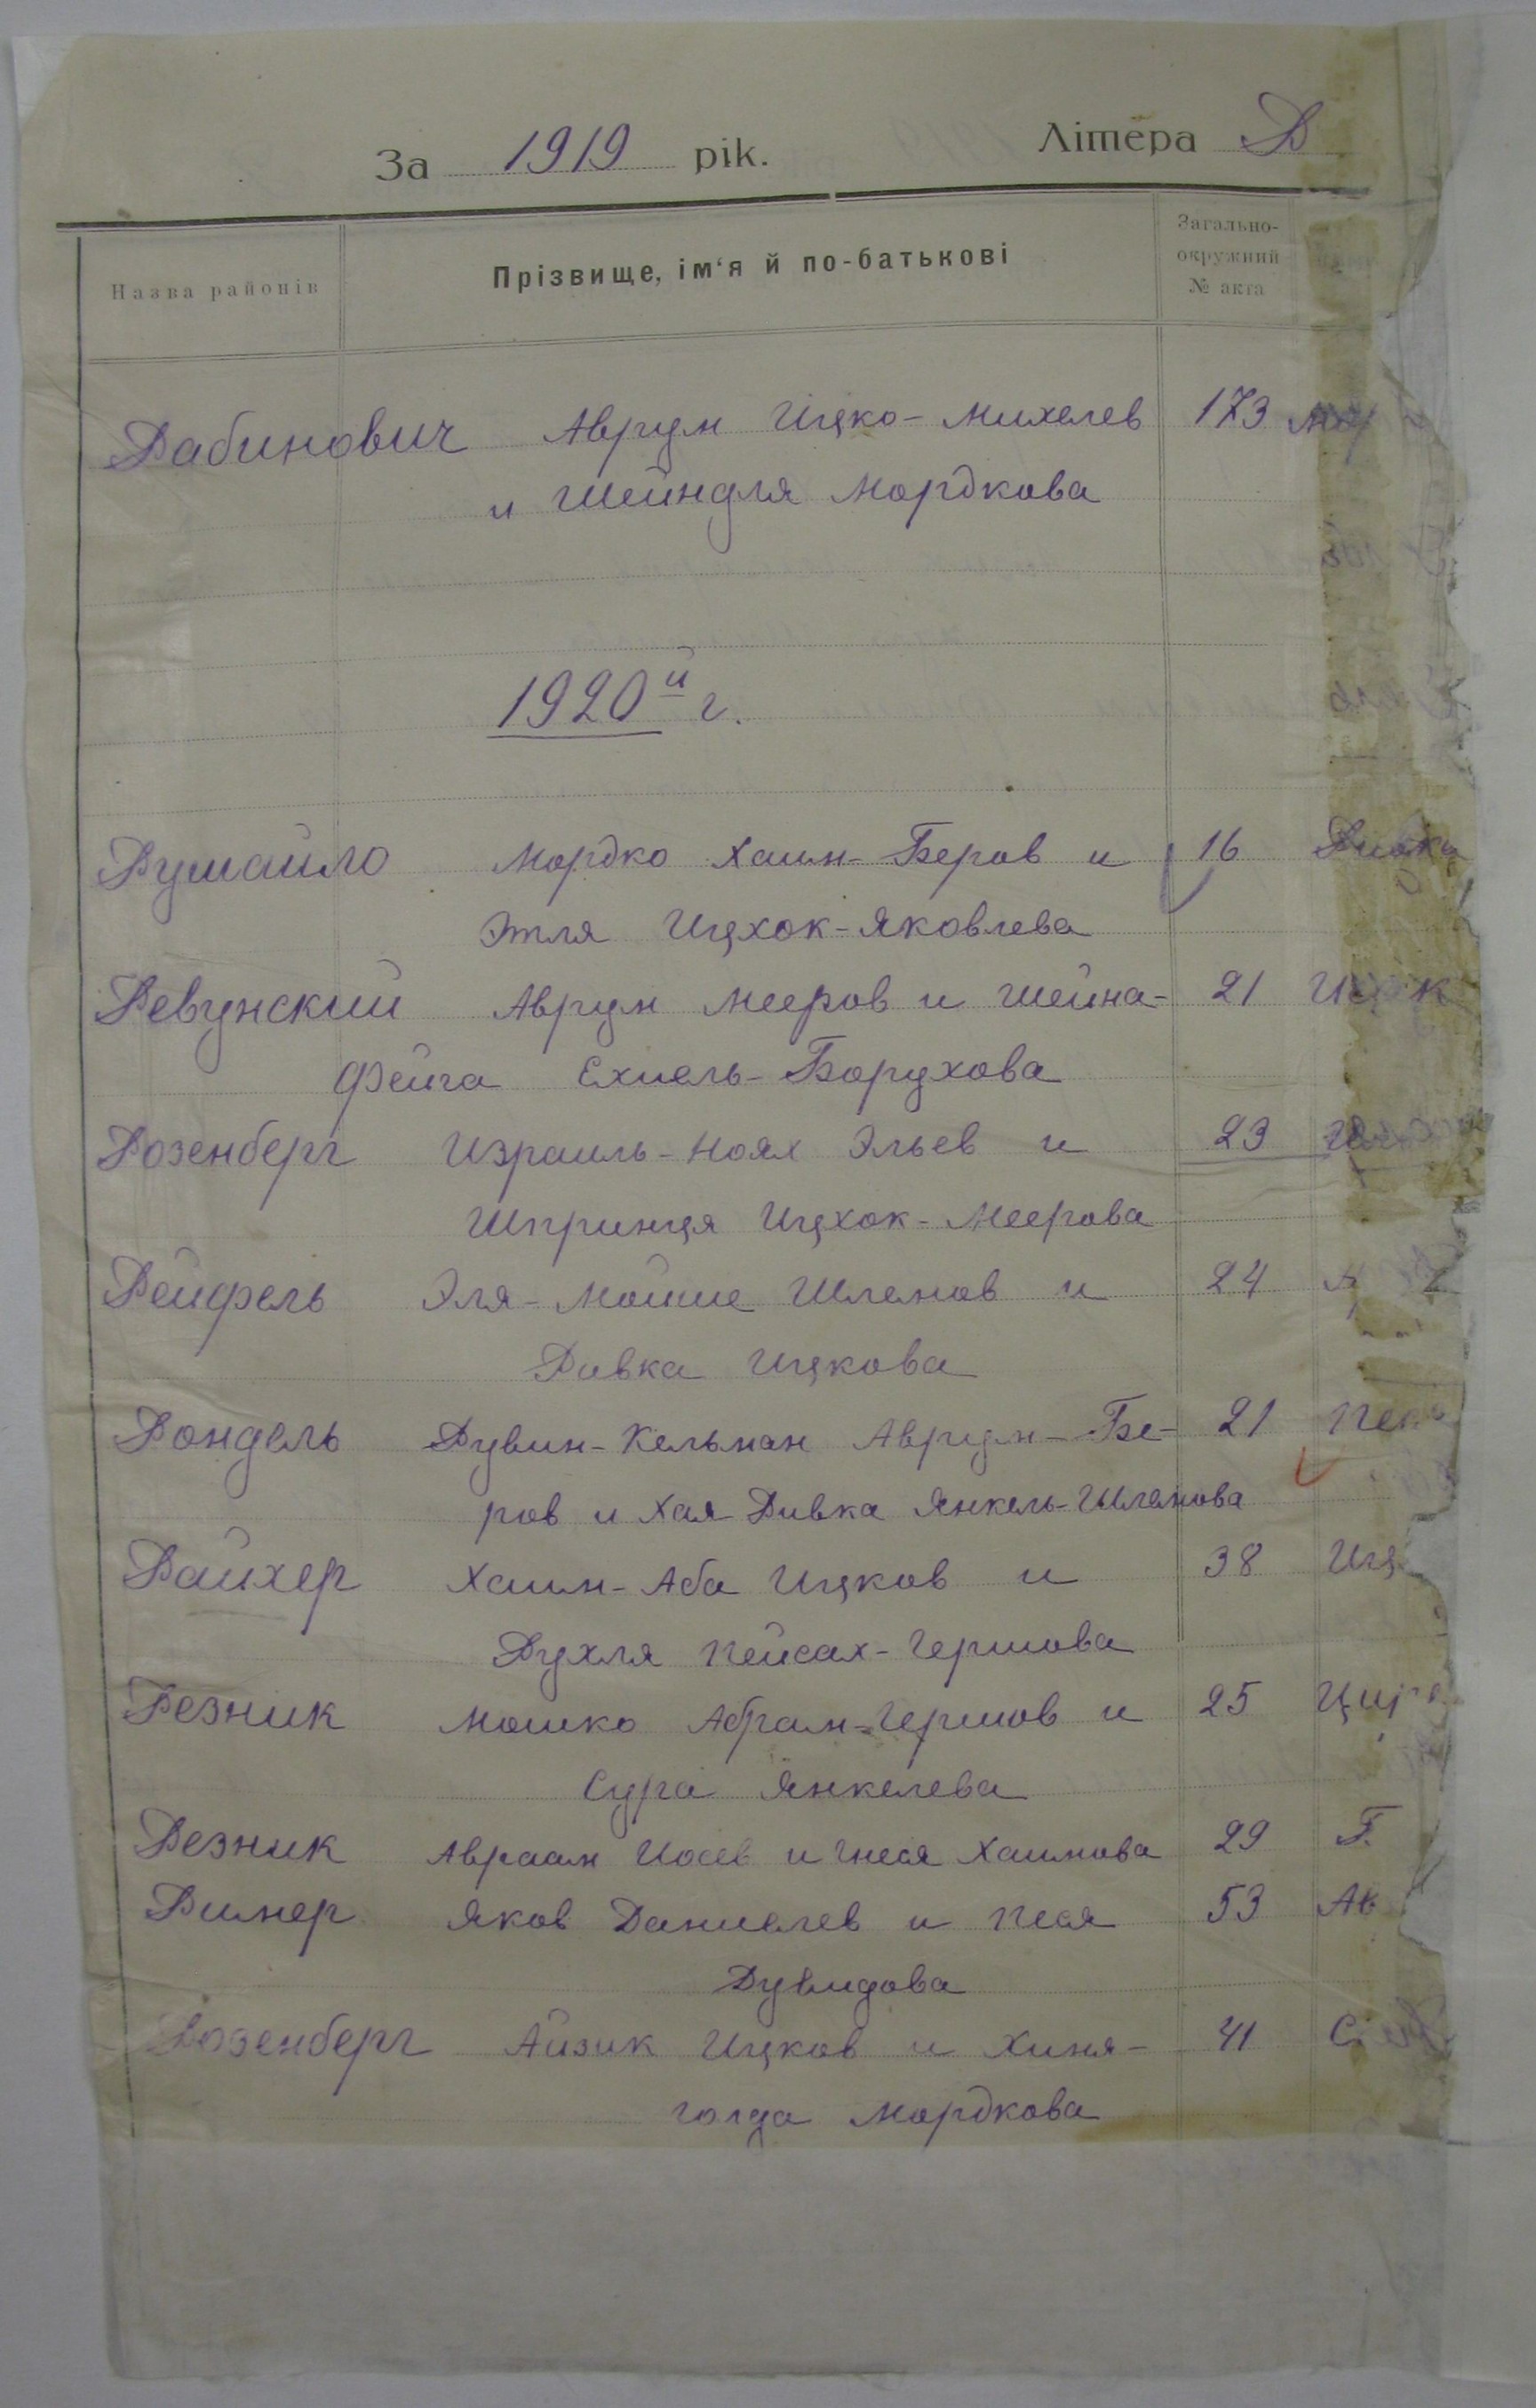 За 1919 рік. Літера Р
Назва районів Прізвище, ім'я й по-батькові Загально-окружний № акта
Рабинович Аврум Ицко-Михелев 173
и Шейндля Мордкова
1920й г.
Румайло Мордко Хаим-Беров и 16 Ривка
Этля Ицхок-Яковлева
Ревунский Аврум Мееров и Шейна- 21
Фейга Ехиель-Борухова
Розенберг Израиль-Ноях Эльев и 23
Шпринця Ицхок-Меерова
Рейфель Эля-Мойше Шлемов и 24
Ривка Ицкова
Рондель Рувин-Кельман Аврум-Бе- 21
ров и Хая-Ривка Янкель-Шлемова
Райхер Хаим-Аба Ицков и 38 Иц
Рухля Пейсах-Гершова
Резник Мошко Абрам-Гершов и 25
Сура Янкелева
Резник Авраам Иосев и Гнеся Хаимова 29 Г.
Ример Яков Даниелев и Песя 53 Ав
Дувидова
Розенберг Айзик Ицков и Хиня- 41
голда Мордкова